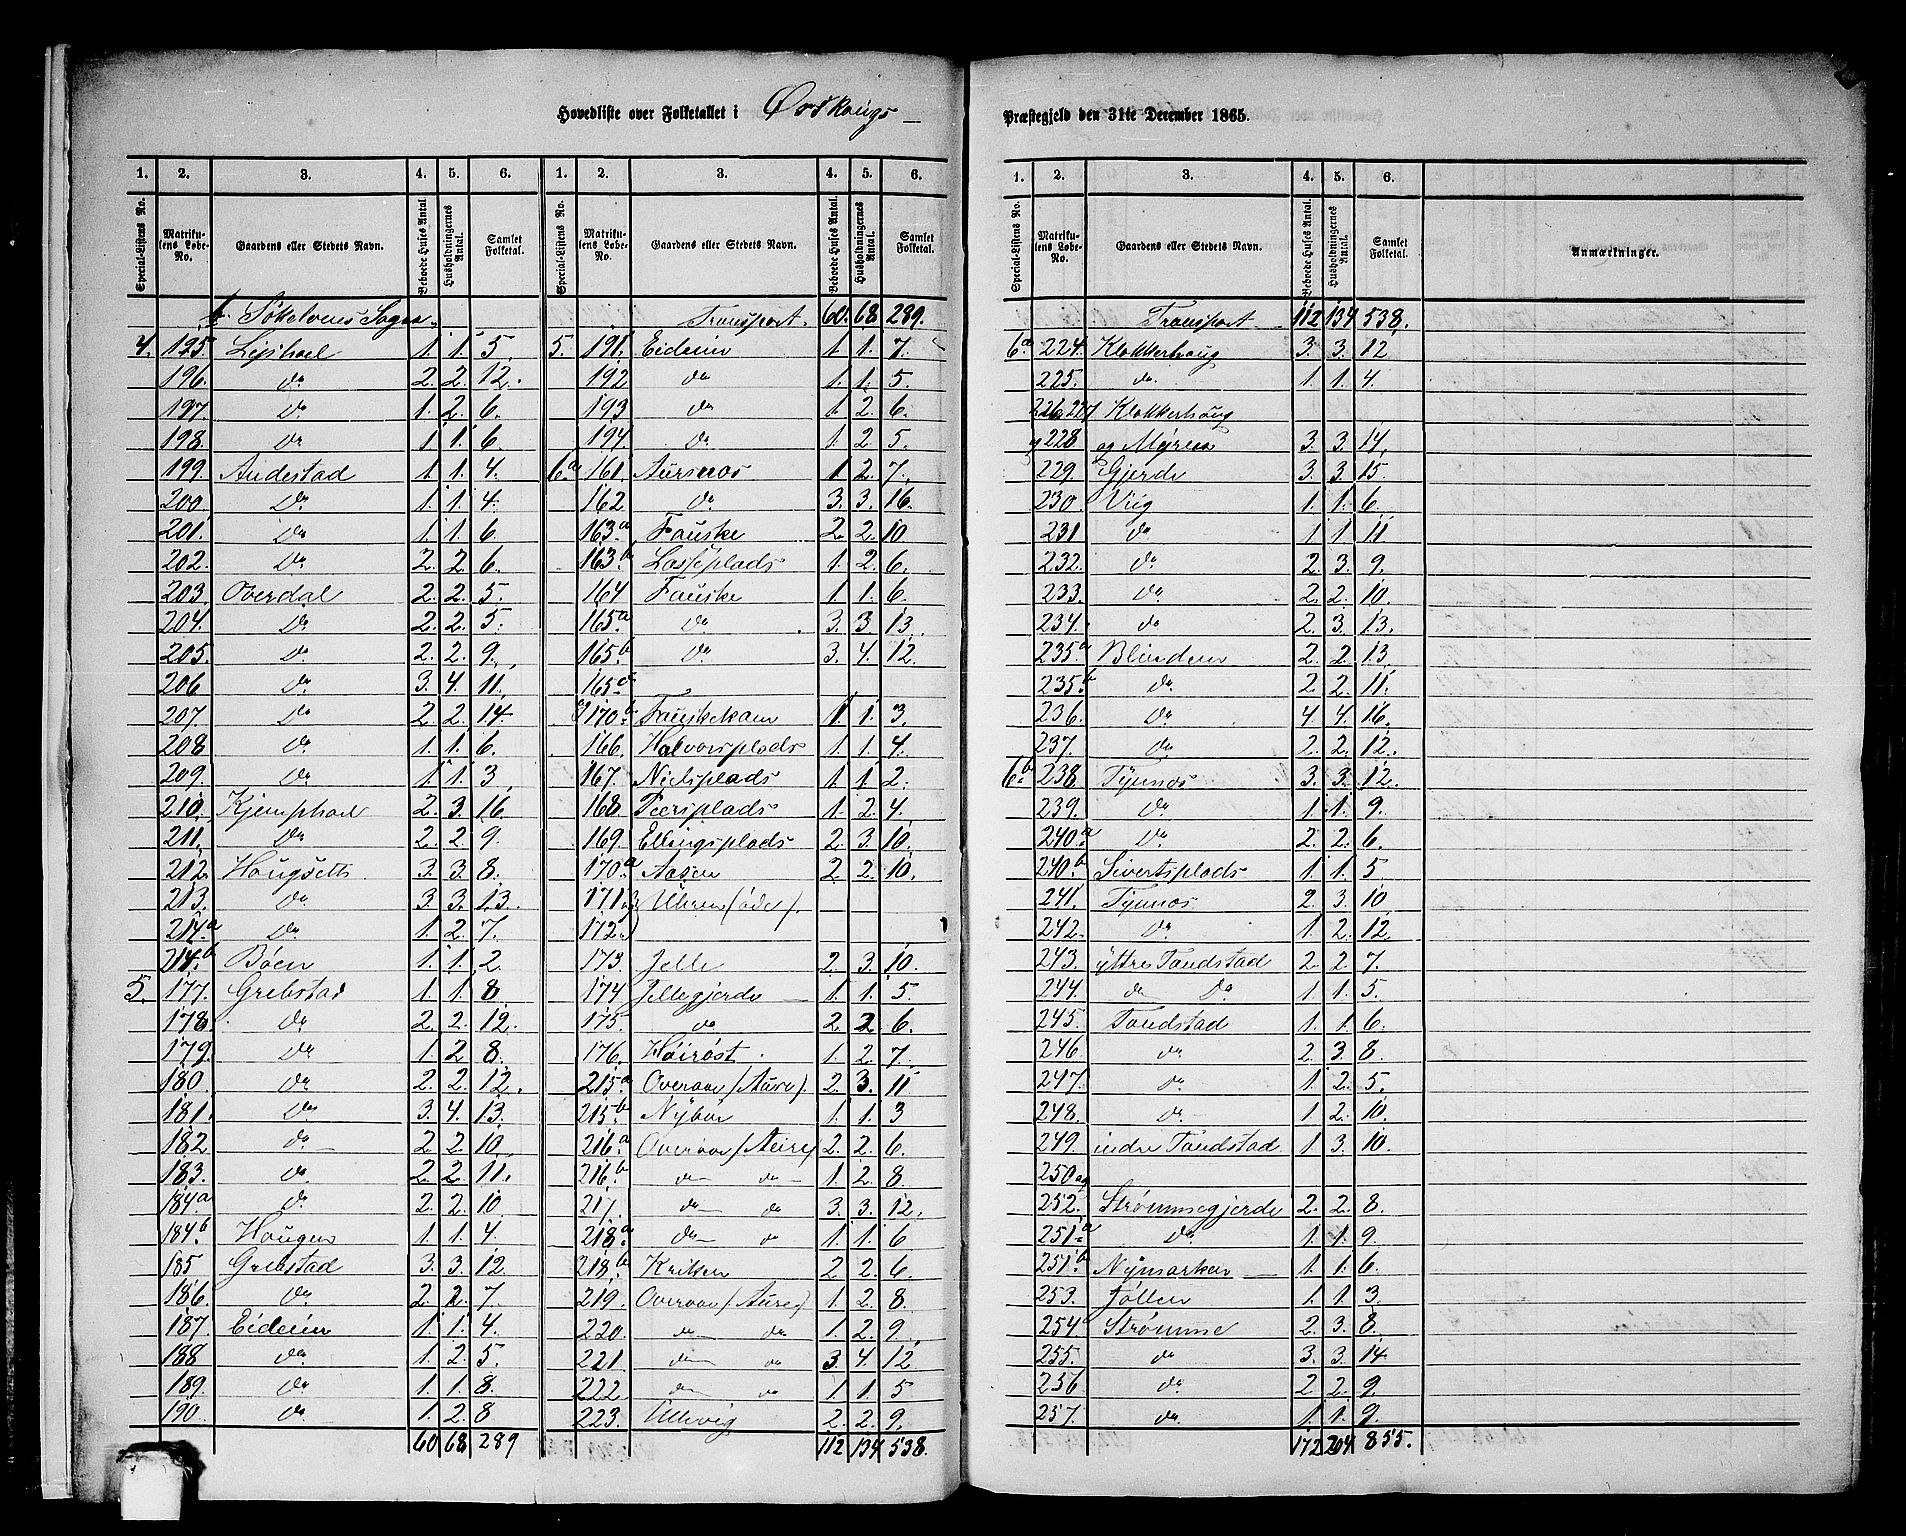 Hovedliste over Folketallet i Ørskougs Præstegjeld den 31te December 1865.
1. 2. 3. 4. 5. 6. 1. 2. 3. 4. 5. 6.
Special-Listens No. Matrikulens Løbe-No. Gaardens eller Stedets Navn. Beboede Huses Antal. Husholdningernes Antal. Samlet Folketal. Special-Listens No. Matrikulens Løbe-No. Gaardens eller Stedets Navn. Beboede Huses Antal. Husholdningernes Antal. Samlet Folketal.
b. Søkelvens Sogn.
4. 195. 1. 1. 5.
196. do 2. 2. 12.
197. do 1. 2. 6.
198. do 1. 1. 6.
199. Andestad 1. 1. 4.
200 do 1. 1. 4.
201. do 1. 1. 6.
202. do 2. 2. 6.
203. Overdal 2. 2. 5.
204. do 2. 2. 5.
205. do 2. 2. 9.
206 do 3. 4. 11.
207. do 2. 2. 14.
208. do 1. 1. 6.
209. do 1. 1. 3.
210. Kjemphoel 2. 3. 16.
211. do 2. 2. 9.
212. Hougsetts 3. 3. 8.
213. do 3. 3. 13.
214a do 1. 2. 7.
214b Bøen 1. 1. 2.
5. 177. Grebstad 1. 1. 8
178. do 2. 2. 12.
179. do 1. 2 8.
180 do 2. 2. 12.
181. do 3. 4. 13.
182 do 2. 2. 10.
183. do 2. 2. 11.
184a do 2. 2. 10.
184b Hougen 1. 1. 4.
185 Grebstad 3. 3. 12
186. do 2. 2. 7.
187. Eideim 1. 1. 4.
188 do 1. 2. 5.
189. do 1. 1. 8.
190. do 1. 2. 8
60 68 289
Transport. 60. 68 289.
5. 191. Eideim 1. 1. 7.
192 do 1. 1. 5.
193 do 1. 2. 6.
194 do 1. 2 5.
6a 161. Aursnos 1. 2. 7.
162 do 3. 3. 16.
163a Fauske 2. 2. 10
163b Lasseplads 1. 2. 6.
164 Fauske 1. 1. 6.
165a do 3. 3. 13.
165b do 3. 4. 12.
165c
170b Fauskekam 1. 1. 3.
166. Halvorsplads 1. 1. 4.
167. Nielsplads 1. 1. 2.
168. Peersplads 1. 2 4.
169. Ellingsplads 2. 3. 10.
170a Aasen 2. 2. 10.
171 Uhren (øde).
172
173. Jelle 2. 3. 10.
174 Jellegjerde 1. 1. 5.
175. do 2. 2 6.
176. Høirøst 1. 2. 7.
215a Overaae (Aure). 2. 3. 11
215b Nybøe 1. 1. 3
216a Overaae (Aure) 2. 2. 6.
216b do do 1. 2. 8.
217. do do 3. 3. 12.
218a do do 1. 1. 6
218b Kriken 2. 2. 6.
219. Overaae (Aure) 1. 2. 8.
220. do do 1. 2. 9.
221 do do 3. 4. 12
222 do do 1. 1. 5
223. Ullevig 2. 2. 9.
112 134 538.
1. 2. 3. 4. 5. 6.
Special-Listens No. Matrikulens Løbe-No. Gaardens eller Stedets Navn. Beboede Huses Antal. Husholdningernes Antal. Samlet Folketal. Anmærkninger.
Transport 112 134 538.
6a 224. Klokkerhoug 3. 3. 12
225. do. 1. 1. 4.
226, 227 Klokkerhoug
og 228 og Myren 3. 3. 14.
229. Gjerde 3. 3. 15.
230 Viig 1. 1. 6.
231 do 1. 1. 11
232. do 2. 3. 9.
233. do 2. 2. 10.
234. do 2. 3. 13.
235a Blindem 2. 2. 13.
235b do. 2. 2. 11.
236. do 4. 4. 16.
237. do 2. 2. 12.
6b 238 Tynnos 3. 3. 12.
239. do 1. 1. 9.
240a do 2. 2. 6.
240b Sivertsplads 1. 1. 5
241. Tynnos 2. 3. 10
242. do 1. 2. 12.
243. yttre Tandstad 2. 2. 7.
244. do do 1. 1. 5.
245. Tandstad 1. 1. 6.
246 do 2. 3. 8.
247. do 1. 2. 5.
248. do 1. 2. 10.
249. indre Tandstad 1. 3. 10.
250 og
252. Strømmegjerde 2. 2. 8.
251a do. 1. 1. 9.
251b Nymarken 1. 1. 6.
253. Jøllen 1. 1. 3.
254 Strømme 2. 3. 8.
255. do 3. 3. 14.
256 do 2. 2. 9.
257. do 1. 1. 9.
172 204 855.